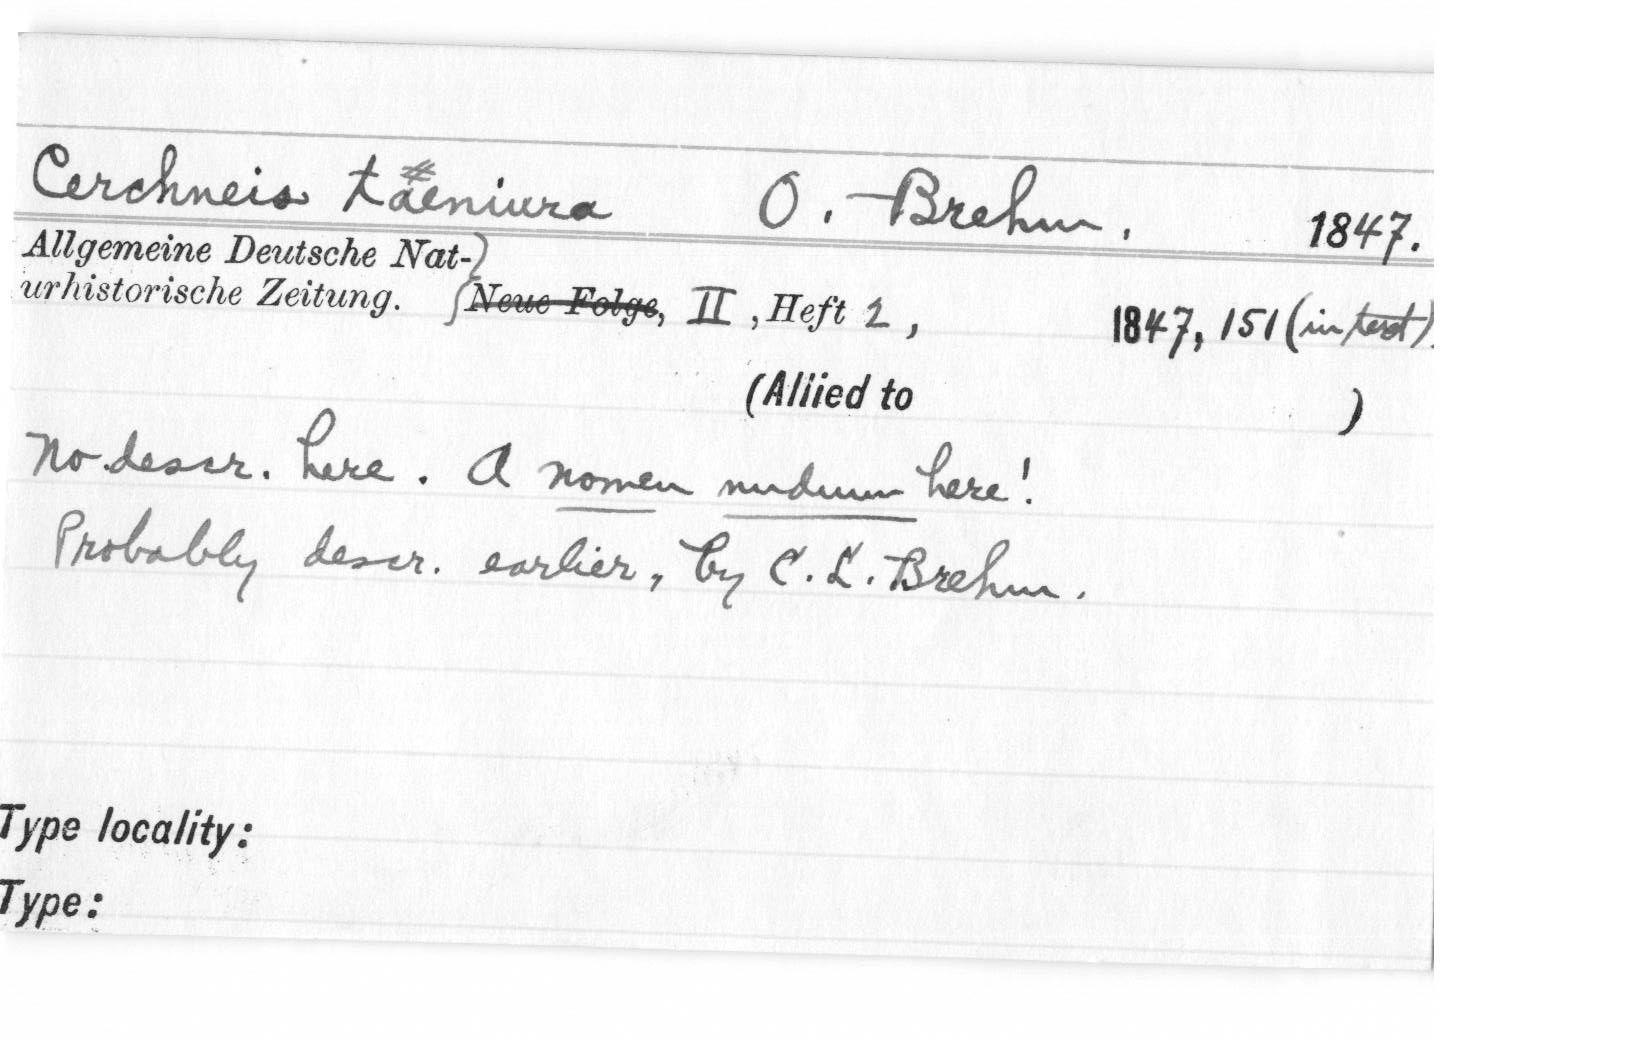 Cerchneis taeniura O. Brehm. 1847.
Allgemeine Deutsche Nat-
urhistorische Zeitung. Neue Folge, II, Heft 2, 1847, 151 (in text).
(Allied to )
No descr. here. A nomen nudum here!
Probably descr. earlier, by C. L. Brehm.
Type locality:
Type: